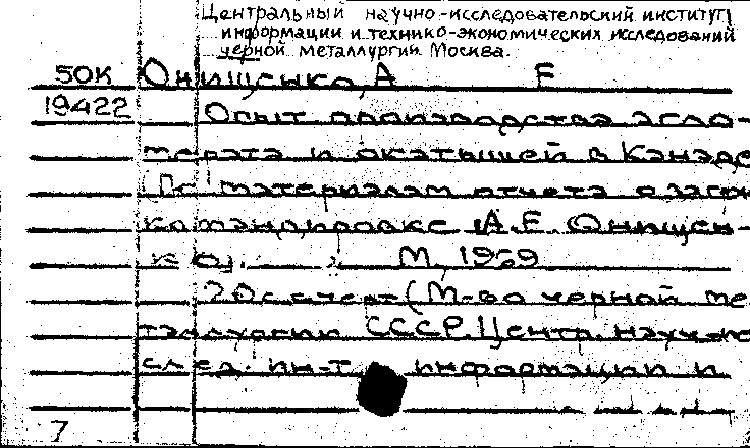 Центральный научно-исследовательский институт
информации и технико-экономических исследований
черной металлургии Москва.
50К Онищенко, А Е
19422 Опыт производства агло-
мерата и окатышей в Канаде
(По материалам отчета о загра
командировке А.Е. Онищен-
ко). М, 1969
20с с черт (М-во черной ме
таллургии СССР. Центр. науч-ис
след. ин-т информации и
7